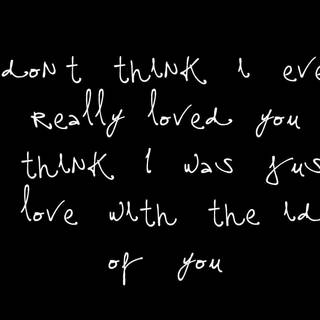 don t think i eve
Really loved you
think I was jus
love with the id
of you